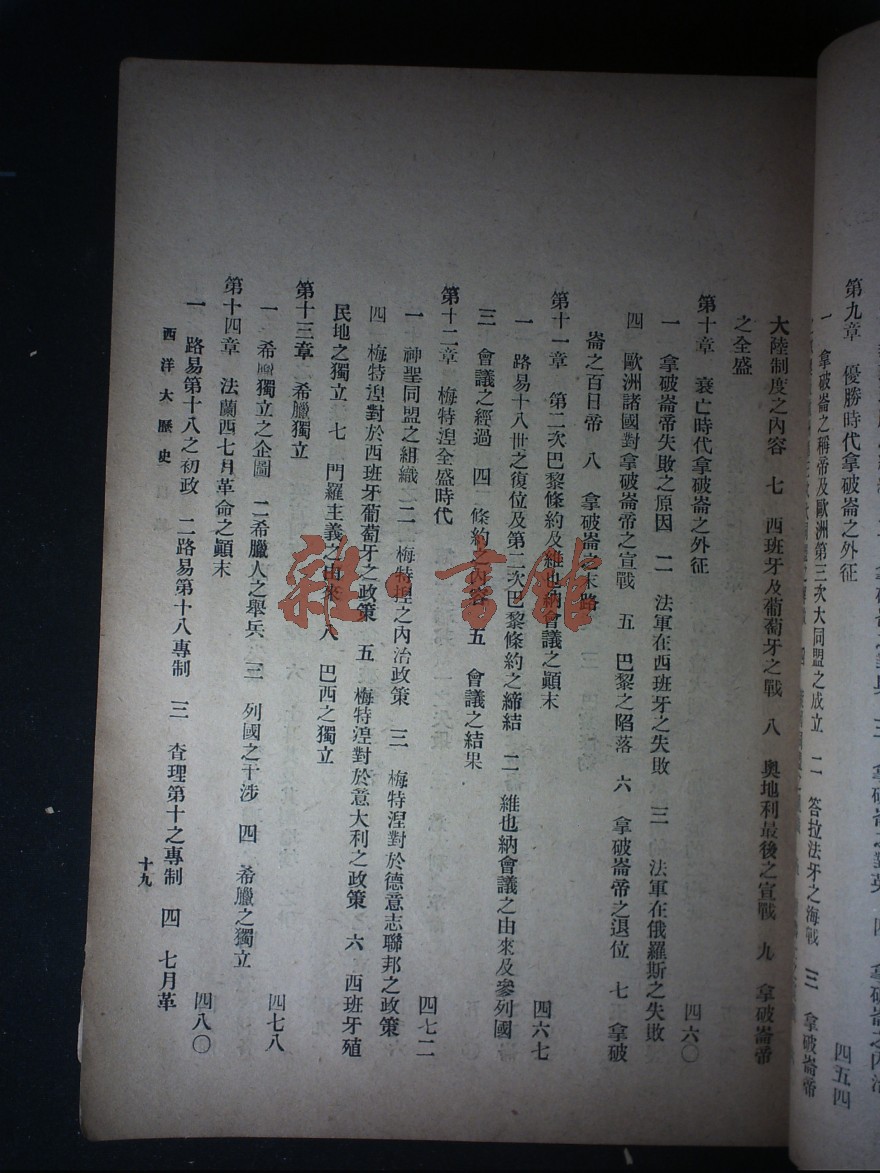 第九章　優勝時代拿破崙之外征
四五四
一　拿破崙之稱帝及歐洲第三次大同盟之成立　二　答拉法牙之海戰　三　拿破崙帝
大陸制度之內容　七　西班牙及葡萄牙之戰　八　奧地利最後之宣戰　九　拿破崙帝
之全盛
第十章　衰亡時代拿破崙之外征
四六〇
一　拿破崙帝失敗之原因　二　法軍在西班牙之失敗　三　法軍在俄羅斯之失敗
四　歐洲諸國對拿破崙帝之宣戰　五　巴黎之陷落　六　拿破崙帝之退位　七　拿破
崙之百日帝　八　拿破崙之末路
第十一章　第二次巴黎條約及維也納會議之顚末
四六七
一　路易十八世之復位及第二次巴黎條約之締結　二　維也納會議之由來及參列國
三　會議之經過　四　條約之內容　五　會議之結果
第十二章　梅特湼全盛時代
四七二
一　神聖同盟之組織　二　梅特湼之內治政策　三　梅特湼對於德意志聯邦之政策
四　梅特湼對於西班牙葡萄牙之政策　五　梅特湼對於意大利之政策　六　西班牙殖
民地之獨立　七　門羅主義之由來　八　巴西之獨立
第十三章　希臘獨立
四七八
一　希臘獨立之企圖　二希臘人之舉兵　三　列國之干涉　四　希臘之獨立
第十四章　法蘭西七月革命之顚末
四八〇
一　路易第十八之初政　二路易第十八專制　三　查理第十之專制　四　七月革
西洋大歷史
十九
雜·書館